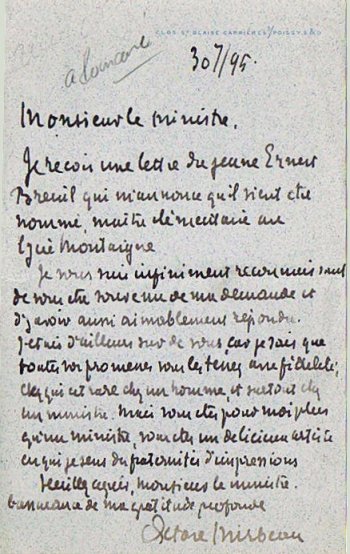 CLOS St BLAISE CARRIÈRES/POISSY S&O
à Lemarié
30 7/95.
Monsieur le ministre,
Je reçois une lettre du jeune Ernest
Breuil qui m'annonce qu'il vient d'être
nommé, maître élémentaire au
lycée Montaigne
Je vous suis infiniment reconnaissant
de vous être souvenu de ma demande et
d'y avoir aussi aimablement répondu.
J'étais d'ailleurs sûr de vous, car je sais que
toutes vos promesses vous les tenez avec fidélité,
ce qui est rare chez un homme, et surtout chez
un ministre. Mais vous êtes pour moi plus
qu'un ministre, vous êtes un délicieux artiste
en qui je sens des fraternités d'impressions
Veuillez agréer, monsieur le ministre.
l'assurance de ma gratitude profonde
Octave Mirbeau